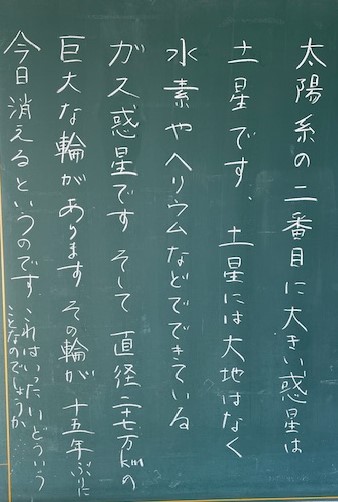 太陽系の二番目に大きい惑星は
土星です、土星には大地はなく
水素やヘリウムなどでできている
ガス惑星です そして 直径二十七万kmの
巨大な輪があります その輪が 十五年ぶりに
今日消えるというのです これはいったいどういう
ことなのでしょうか